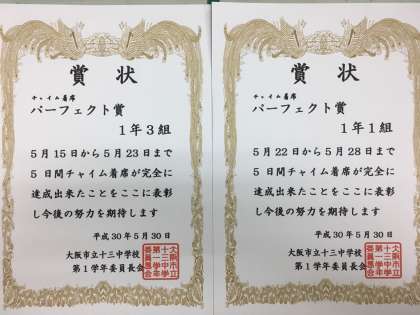 賞状
チャイム着席
パーフェクト賞
1年3組
5月15日から5月23日まで
5日間チャイム着席が完全に
達成出来たことをここに表彰
し今後の努力を期待します
平成30年5月30日
大阪市立十三中学校
第1学年委員長会
大阪市立
十三中学
第一学年
委員長会
賞状
チャイム着席
パーフェクト賞
1年1組
5月22日から5月28日まで
5日間チャイム着席が完全に
達成出来たことをここに表彰
し今後の努力を期待します
平成30年5月30日
大阪市立十三中学校
第1学年委員長会
大阪市立
十三中学
第一学年
委員長会